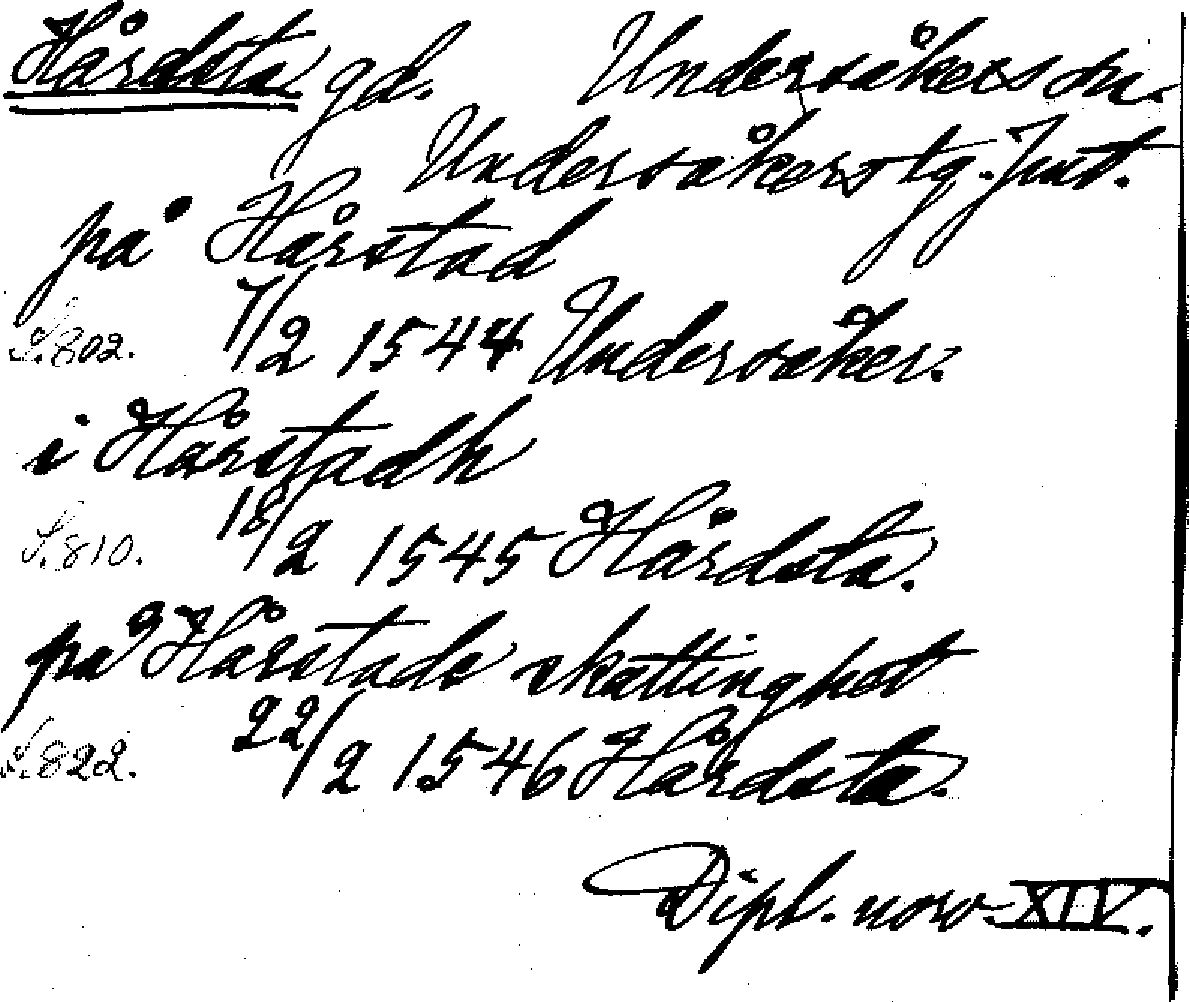 Hårdsta gd. Undersåkers sn.
Undersåkers tg. Jmt.
på Hårstad
S.802. 7/2 1544 Undersåker.
i Hårstadh
S.810. 18/2 1545 Hårdsta.
på Hårstads skattinghet
S.822. 22/2 1546 Hårdsta.
Dipl. norv. XIV.